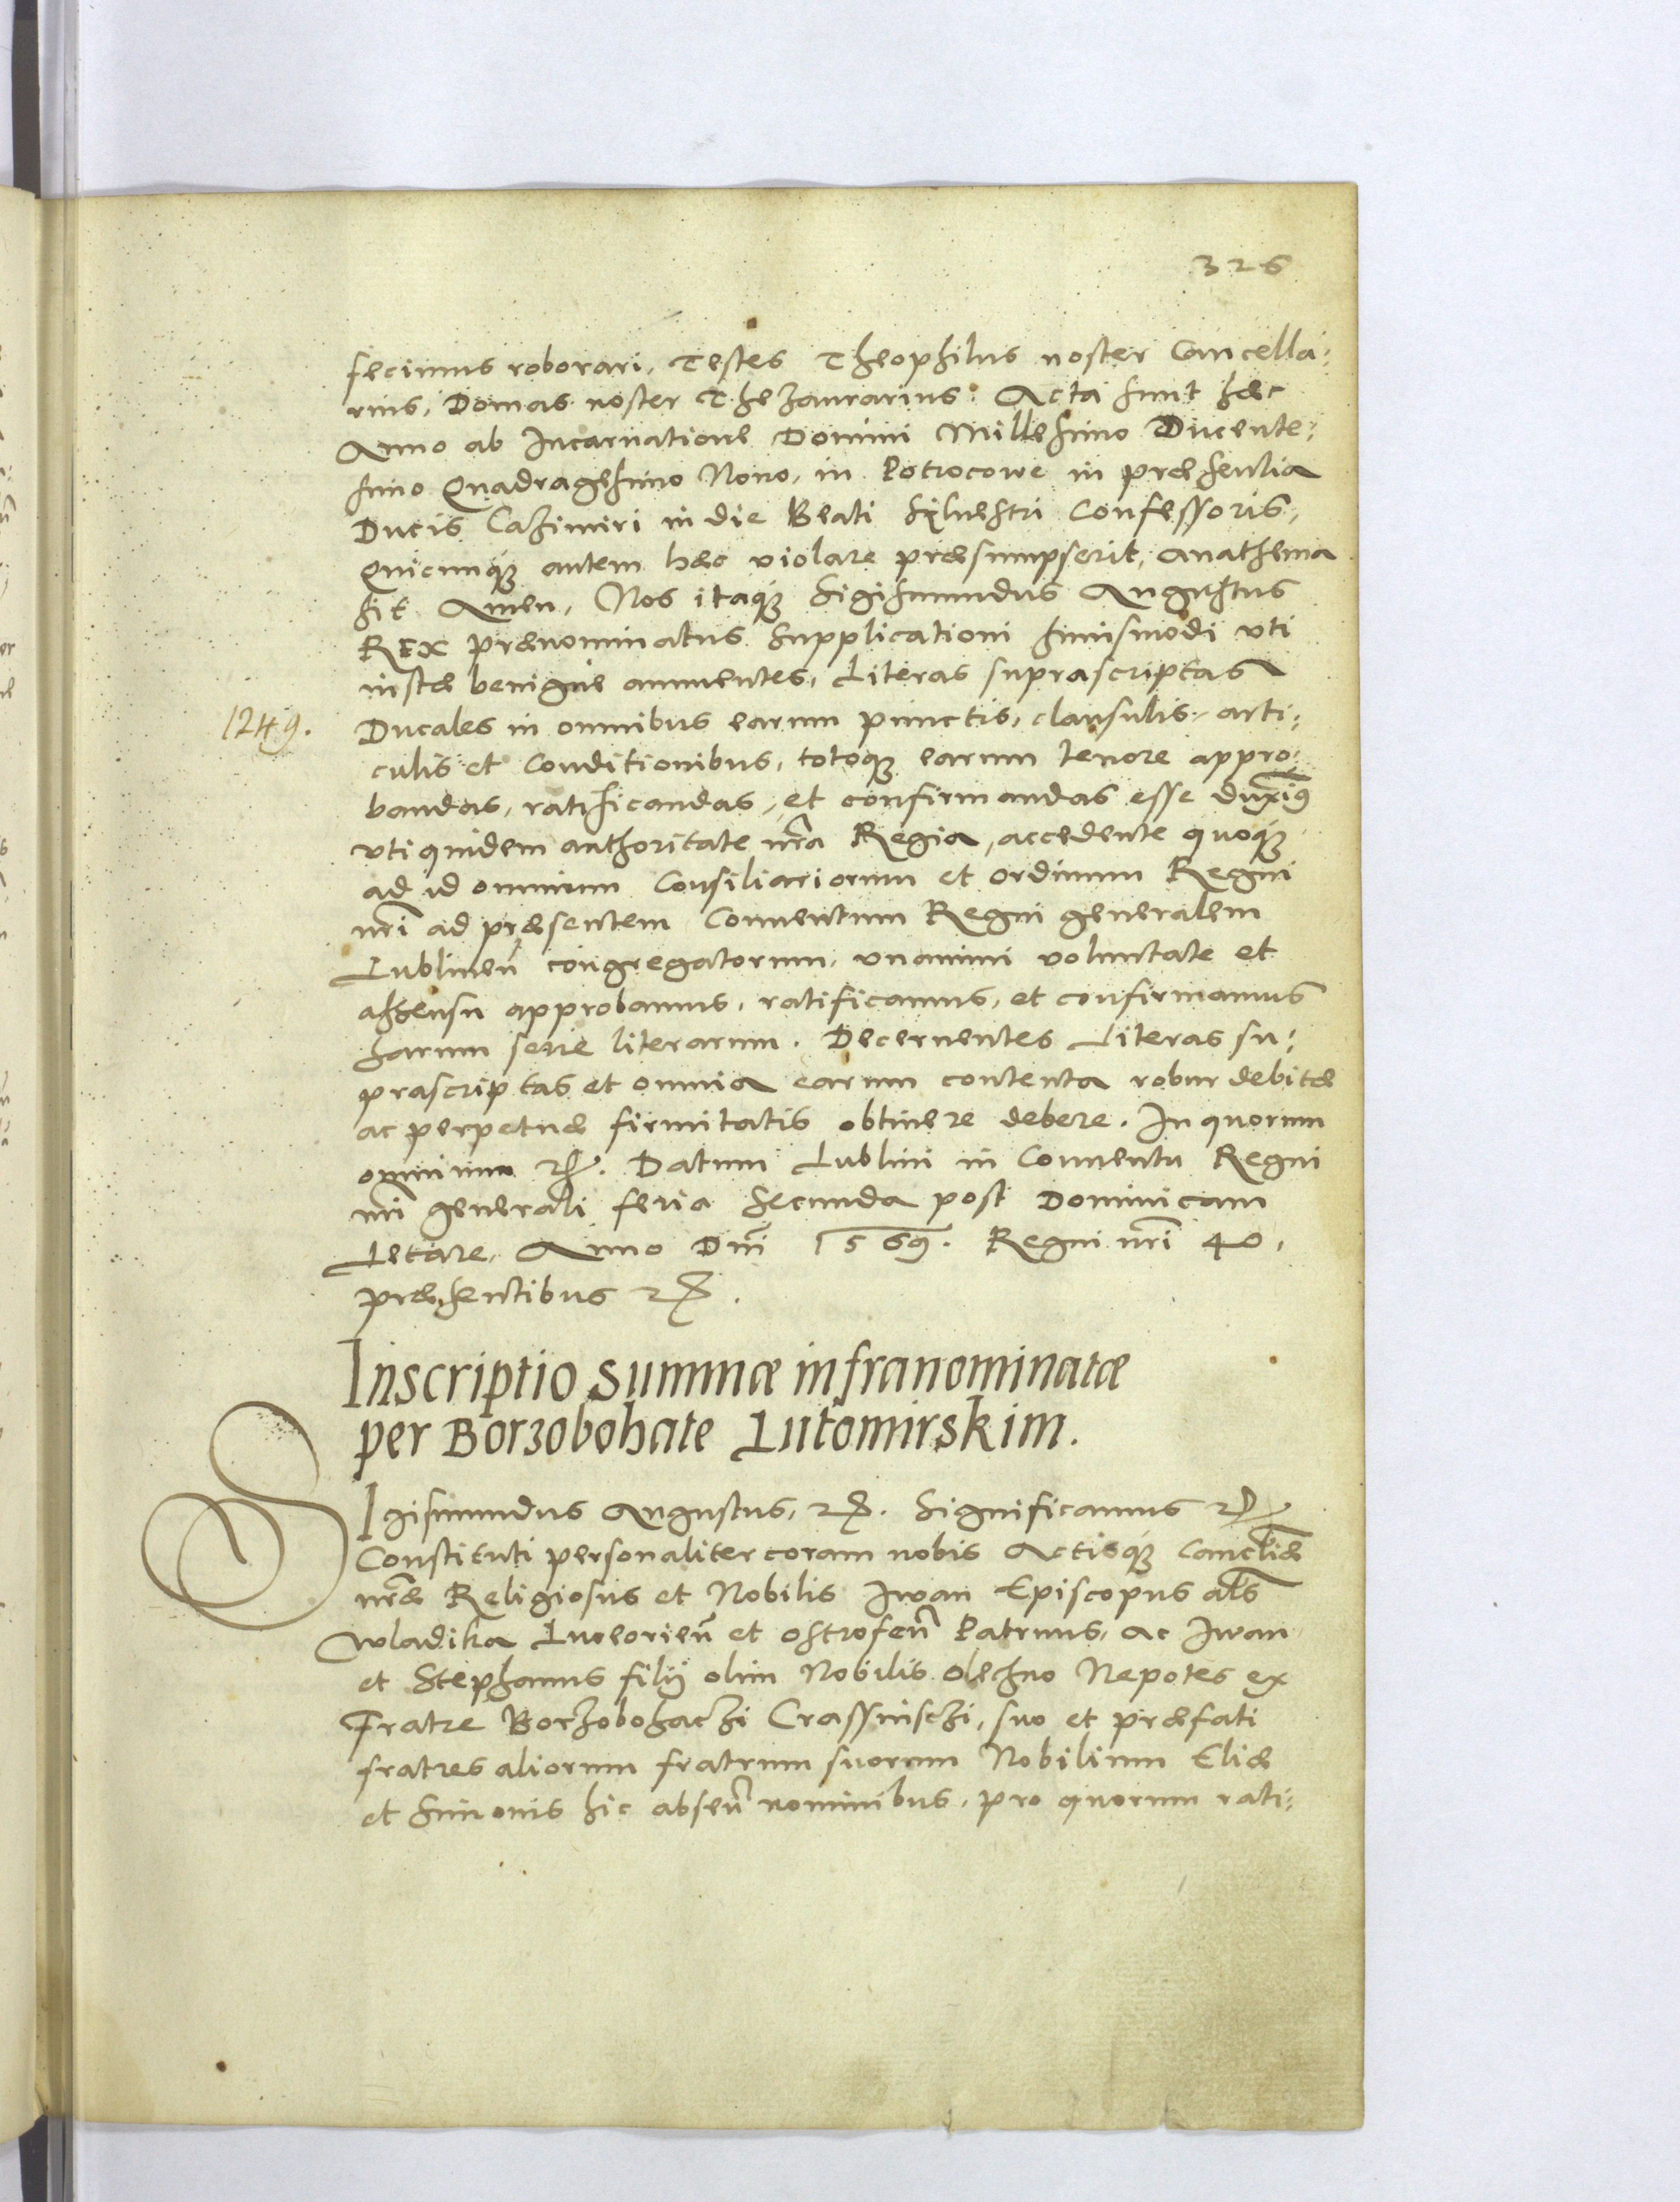 326
fecimus roborari, Testes Theophilus noster Cancella:
rius, Domas noster Thezaurarius: Acta sunt hæc
Anno ab Incarnatione Domini Millesimo Ducente:
simo Quadragesimo Nono, in Potrocowe in præsentia
Ducis Cazimiri in die Beati Sylvestri Confessoris,
Quicunq͛ autem hæc violare præsumpserit, anathema
sit Amen, Nos itaq͛ Sigismundus Augustus
REX prænominatus supplicationi huiusmodi uti
iustæ benigne annuentes, Literas suprascriptas
1249.
Ducales in omnibus earum punctis, clausulis, arti:
culis et Conditionibus, totoq͛ earum tenore appro:
bandas, ratificandas, et confirmandas esse duxim9
uti quidem authoritate nr̄a Regia, accedente quoq͛
ad id omnium Consiliariorum et ordinum Regni
nr̄i ad præsentem Conventum Regni generalem
Lublineñ congregatorum, unanimi voluntate et
assensu approbamus, ratificamus, et confirmamus
harum serie literarum. Decernentes Literas su:
prascriptas et omnia earum contenta robur debitæ
ac perpetuæ firmitatis obtinere debere. In quorum
omnium etc. Datum Lublini in Conventu Regni
nr̄i generali feria secunda post Dominicam
Letare, Anno Dn̄i 1569. Regni nr̄i 40,
præsentibus etc.
Inscriptio Summæ infranominatæ
per Borzobohate Lutomirskim.
SIgismundus Augustus, etc. Significamus etc
Constituti personaliter coram nobis Actisq͛ Canc̄lliæ
nr̄æ Religiosus et Nobilis Iwan Episcopus al̄s
Wladika Luceorieñ et ostrofeñ Patruus, ac Iwan
et Stephanus filij olim Nobilis Olechno Nepotes ex
Fratre Borzobohaczi Crassinsczi, suo et præfati
fratres aliorum fratrum suorum Nobilium Eliæ
et Simonis hic abseñ nominibus, pro quorum rati: